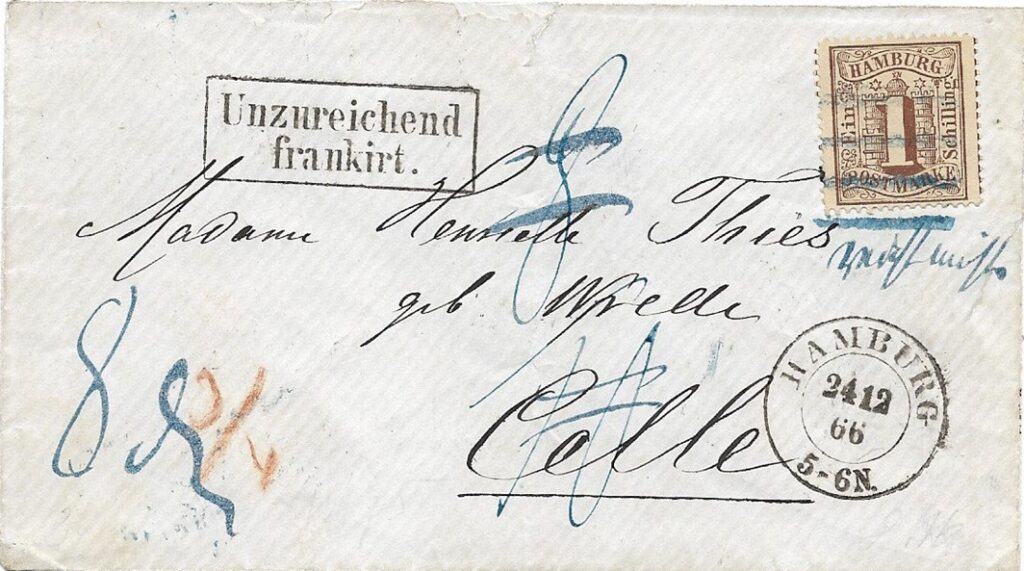 HAMBURG
Ein
1
Schilling
POSTMARKE
Unzureichend
frankirt.
Madame Henriette Thies
geb Wrede
Celle
HAMBURG
24 12
66
5-6N.
8